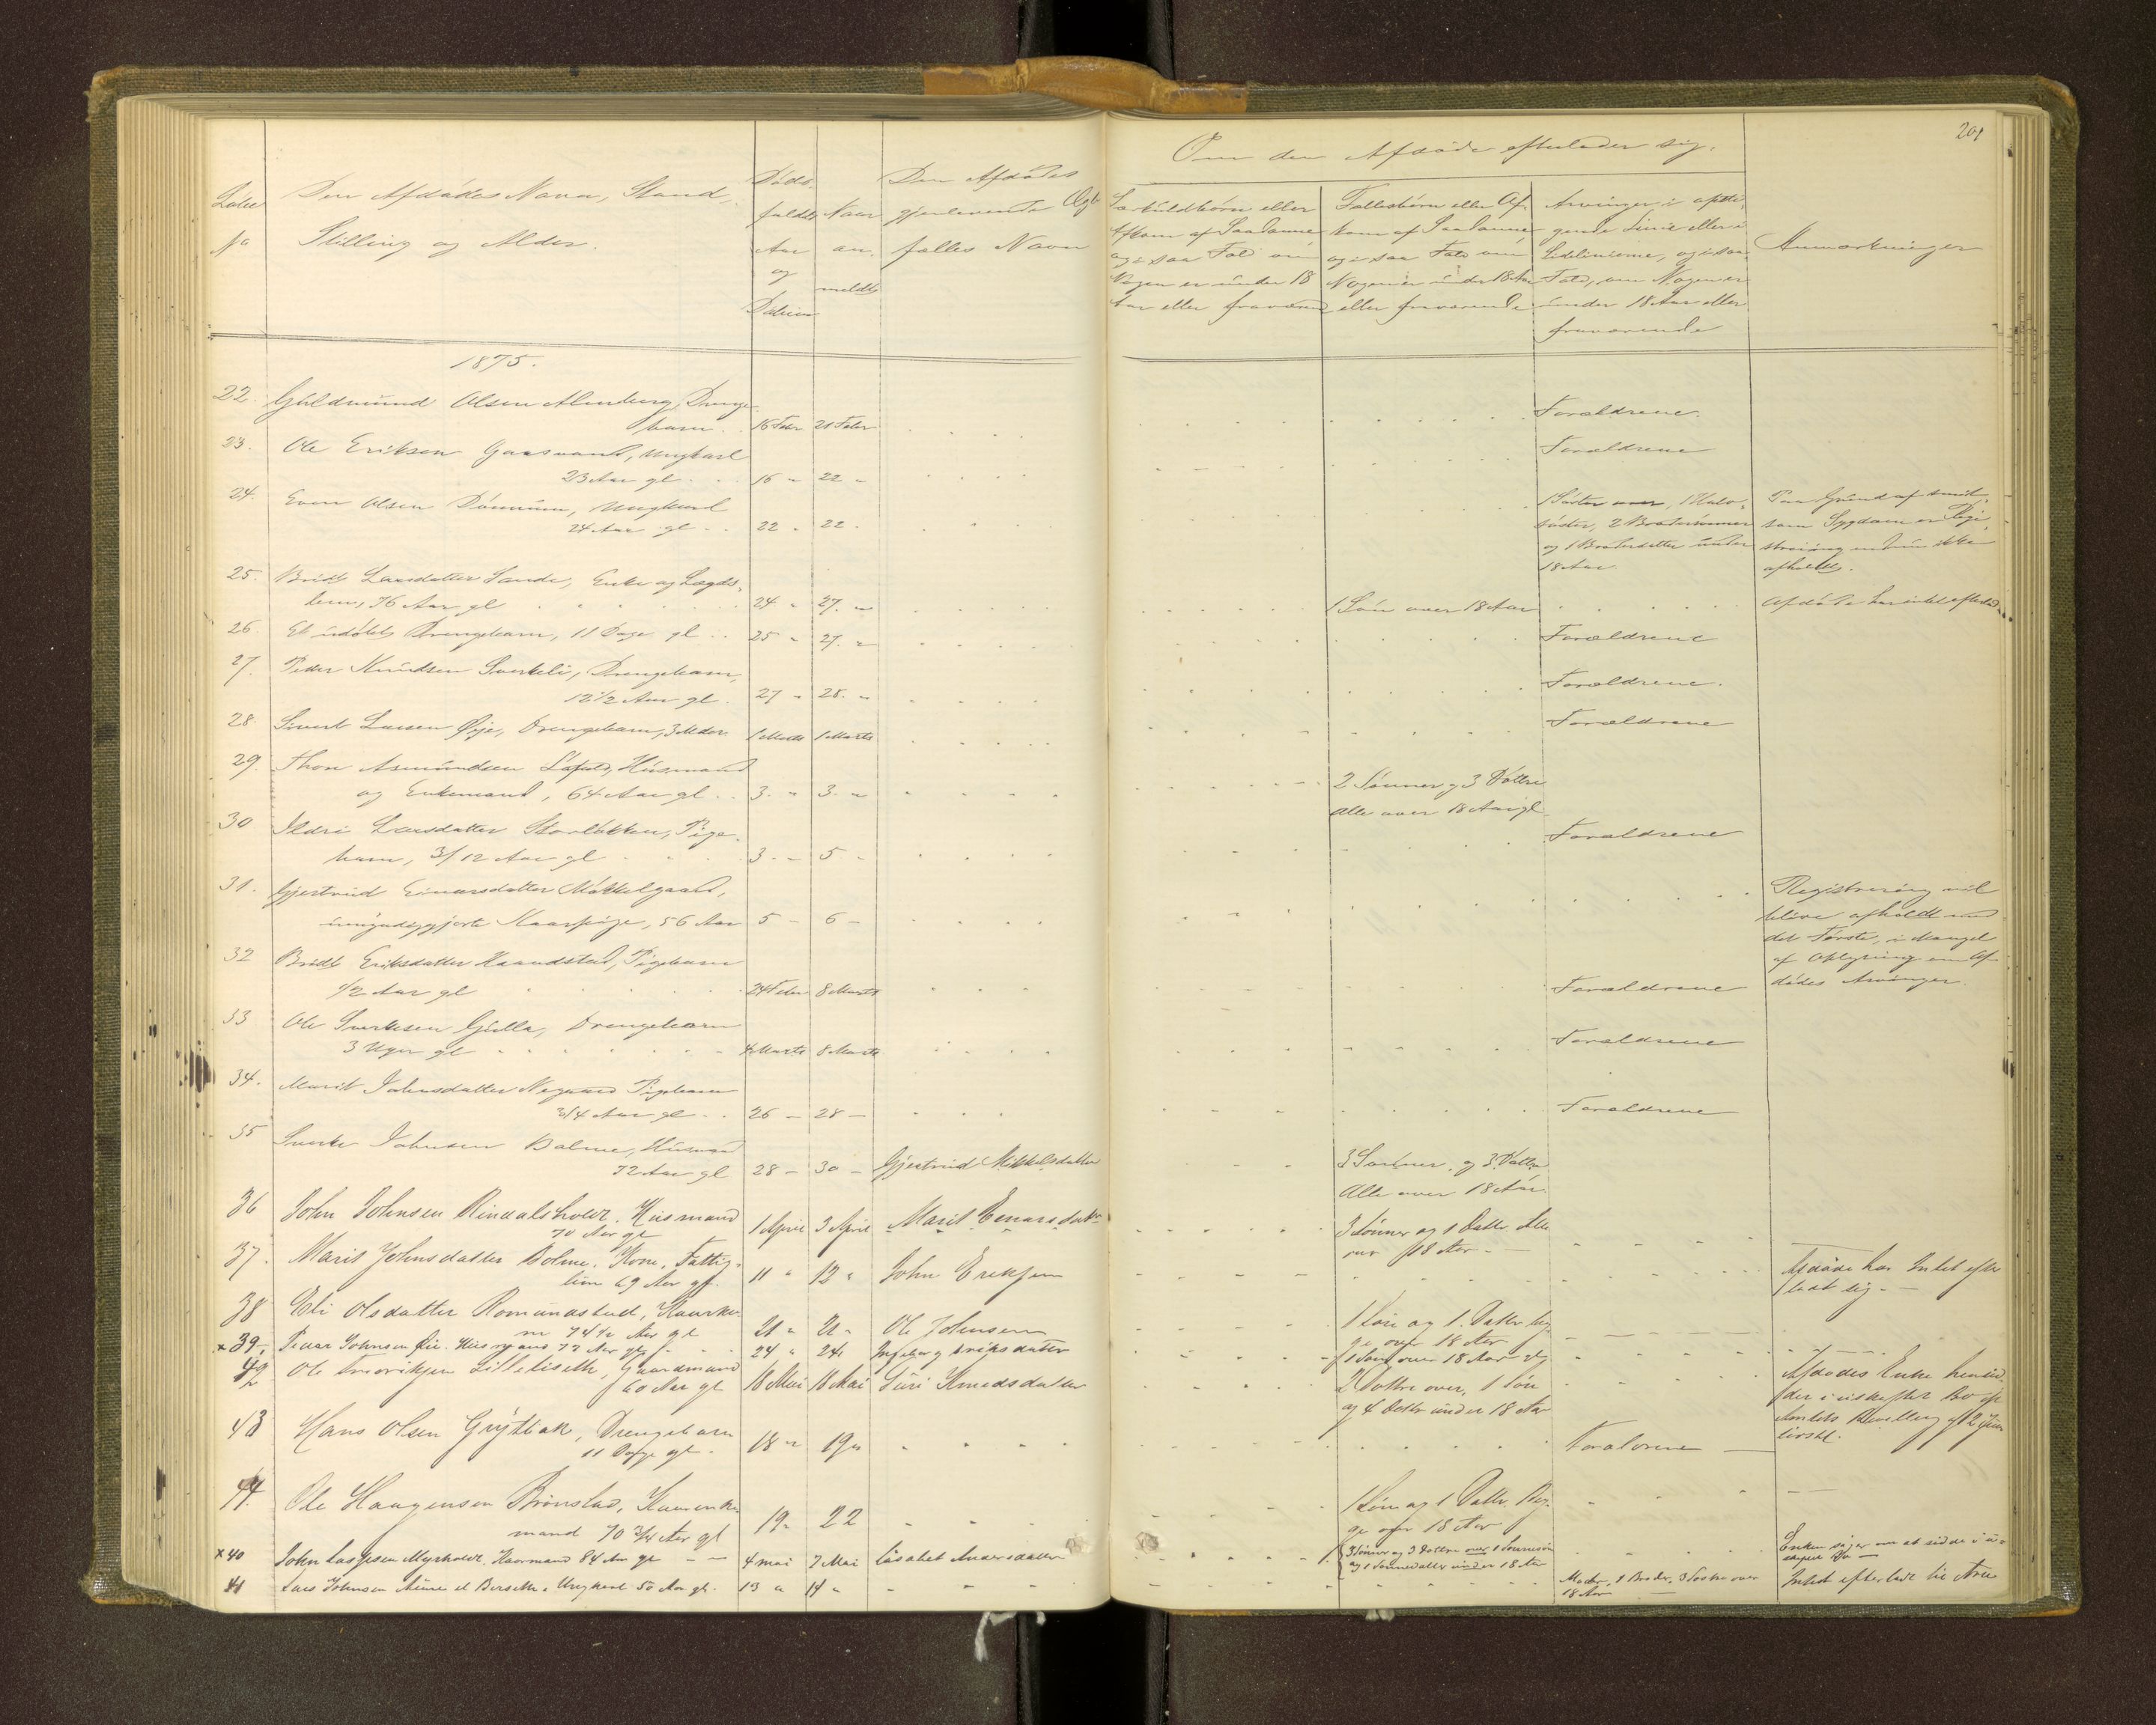 201
Om den Afdøde efterlader sig.
Løbe
No
Den Afdødes Navn, Stand,
Stilling og Alder.
Døds-
faldets
Aar
og
Datum
Naar
an-
meldt
Den Afdødes
gjenlevende Ægte
fælles Navn
Særkuldbørn eller
Afkom af Saadanne
og i saa Fald om
Nogen er under 18
Aar eller fraværend
Fællesbørn eller Af-
kom af Saadanne,
og i saa Fald om
Nogen er under 18 Aar
eller fraværende
Arvinger i opsti-
gende Linie eller i
Sidelinierne, og i saa
Fald, om Nogen er
under 18 Aar eller
fraværende
Anmærkninger
1875.
22. Guldmund Olsen Almberg, Drenge-
barn. 16 Febr 21 Febr Forældrene.
23. Ole Eriksen Gaasvand, Ungkarl
23 Aar gl 16 " 22 " Forældrene
24. Even Olsen Ungkarl
24 Aar gl 22 " 22.
1 Søster over, 1 Halv-
søster, 2 Brodersønner
og 1 Broderdatter under
18 Aar
Paa Grund af smit-
som Sygdom er Regi-
strering endnu ikke
afholdt.
25. Bridt Larsdatter Sande, Enke og Lægds-
lem, 76 Aar gl 24 " 27. " 1 Søn over 18 Aar Afdøde har intet efterladt
26. Et udøbt Drengebarn, 11 Dage gl 25 " 27. " Forældrene
27. Peder Knudsen Sverkeli, Drengebarn,
12 1/2 Aar gl 27 " 28. " Forældrene.
28. Sivert Larsen Øye, Drengebarn, 3 Mdr. 1 Marts 1 Marts Forældrene
29. Thore Asmundsen Løfald, Husmand
og Enkemand, 64 Aar gl 3. " 3. "
2 Sønner og 3 Døttre
Alle over 18 Aar gl.
30 Ildri Larsdatter Storløkken, Pige-
barn, 3/12 Aar gl 3. - 5 - Forældrene
31. Gjertrud Einarsdatter Mikkelgaard,
umyndiggjorte Kaarpige, 56 Aar 5 - 6 -
Registrering vil
blive afholdt med
det Første, i Mangel
af Oplysning om Af-
dødes Arvinger.
32 Bridt Eriksdatter Haandstad, Pigebarn
1/2 Aar gl 24 Febr 8 Marts Forældrene
33 Ole Sverkesen Gulla, Drengebarn
3 Uger gl 4 Marts 8 Marts Forældrene
34. Marit Johnsdatter Negaard Pigebarn
3/4 Aar gl 26 - 28 - Forældrene
35 Sverke Johnsen Bolme, Husmand
72 Aar gl 28 - 30 - Gjertrud Mikkelsdatter
3 Sønner og 3 Døttre
Alle over 18 Aar.
36 John Johnsen Rindalsholdt. Husmand
70 Aar gl 1 April 3 April Marit Einarsdatter
3 Sønner og 1 Datter Alle
over 18 Aar -
37. Marit Johnsdatter Bolme. Kone. Fattig-
lem 69 Aar gl. 11 " 12 " John Eriksen
Afdøde har Intet efter
ladt sig. -
38 Eli Olsdatter Romundstad, Kaarko-
ne 74 1/2 Aar gl 21 " 21 " Ole Johnsen
1 Søn og 1 Datter beg-
ge over 18 Aar
x 39. Peder Johnsen Lie. Husmand 77 Aar gl. 24 " 24 Ingeborg Eriksdatter
1 Søn over 18 Aar
42 Ole Lillebiseth, Gaardmand
60 Aar gl 18 Mai 18 Mai Siri Knudsdatter
2 Døttre over, 1 Søn
og 4 Døttr under 18 Aar
Afdødes Enke hensid
der i uskiftet Bo
Amtets Bevilling af 2 Juni
43 Hans Olsen Grytbak, Drengebarn
11 Dage gl 18 " 19 " Forældrene
44. Ole Haagensen Brønstad, Kaarenke-
mand 70 3/4 Aar gl 19 " 22
1 Søn og 1 Datter. Beg-
ge over 18 Aar
x 40 John Larsen Myrholdt. Kaarmand 84 Aar gl 4 Mai 7 Mai Lisabet Andersdatter
3 Sønner og 3 Døttre over 1 Sønnesøn
og 1 Sønnedatter under 18 Aar
Enken siger om at sidde i u-
skiftet Bo -
41 Lars Johnsen Bersethe. Ungkarl 50 Aar gl. 13 " 14 "
Moder, 1 Broder, 3 Søstre over
18 Aar
Intet efterladt til Arve